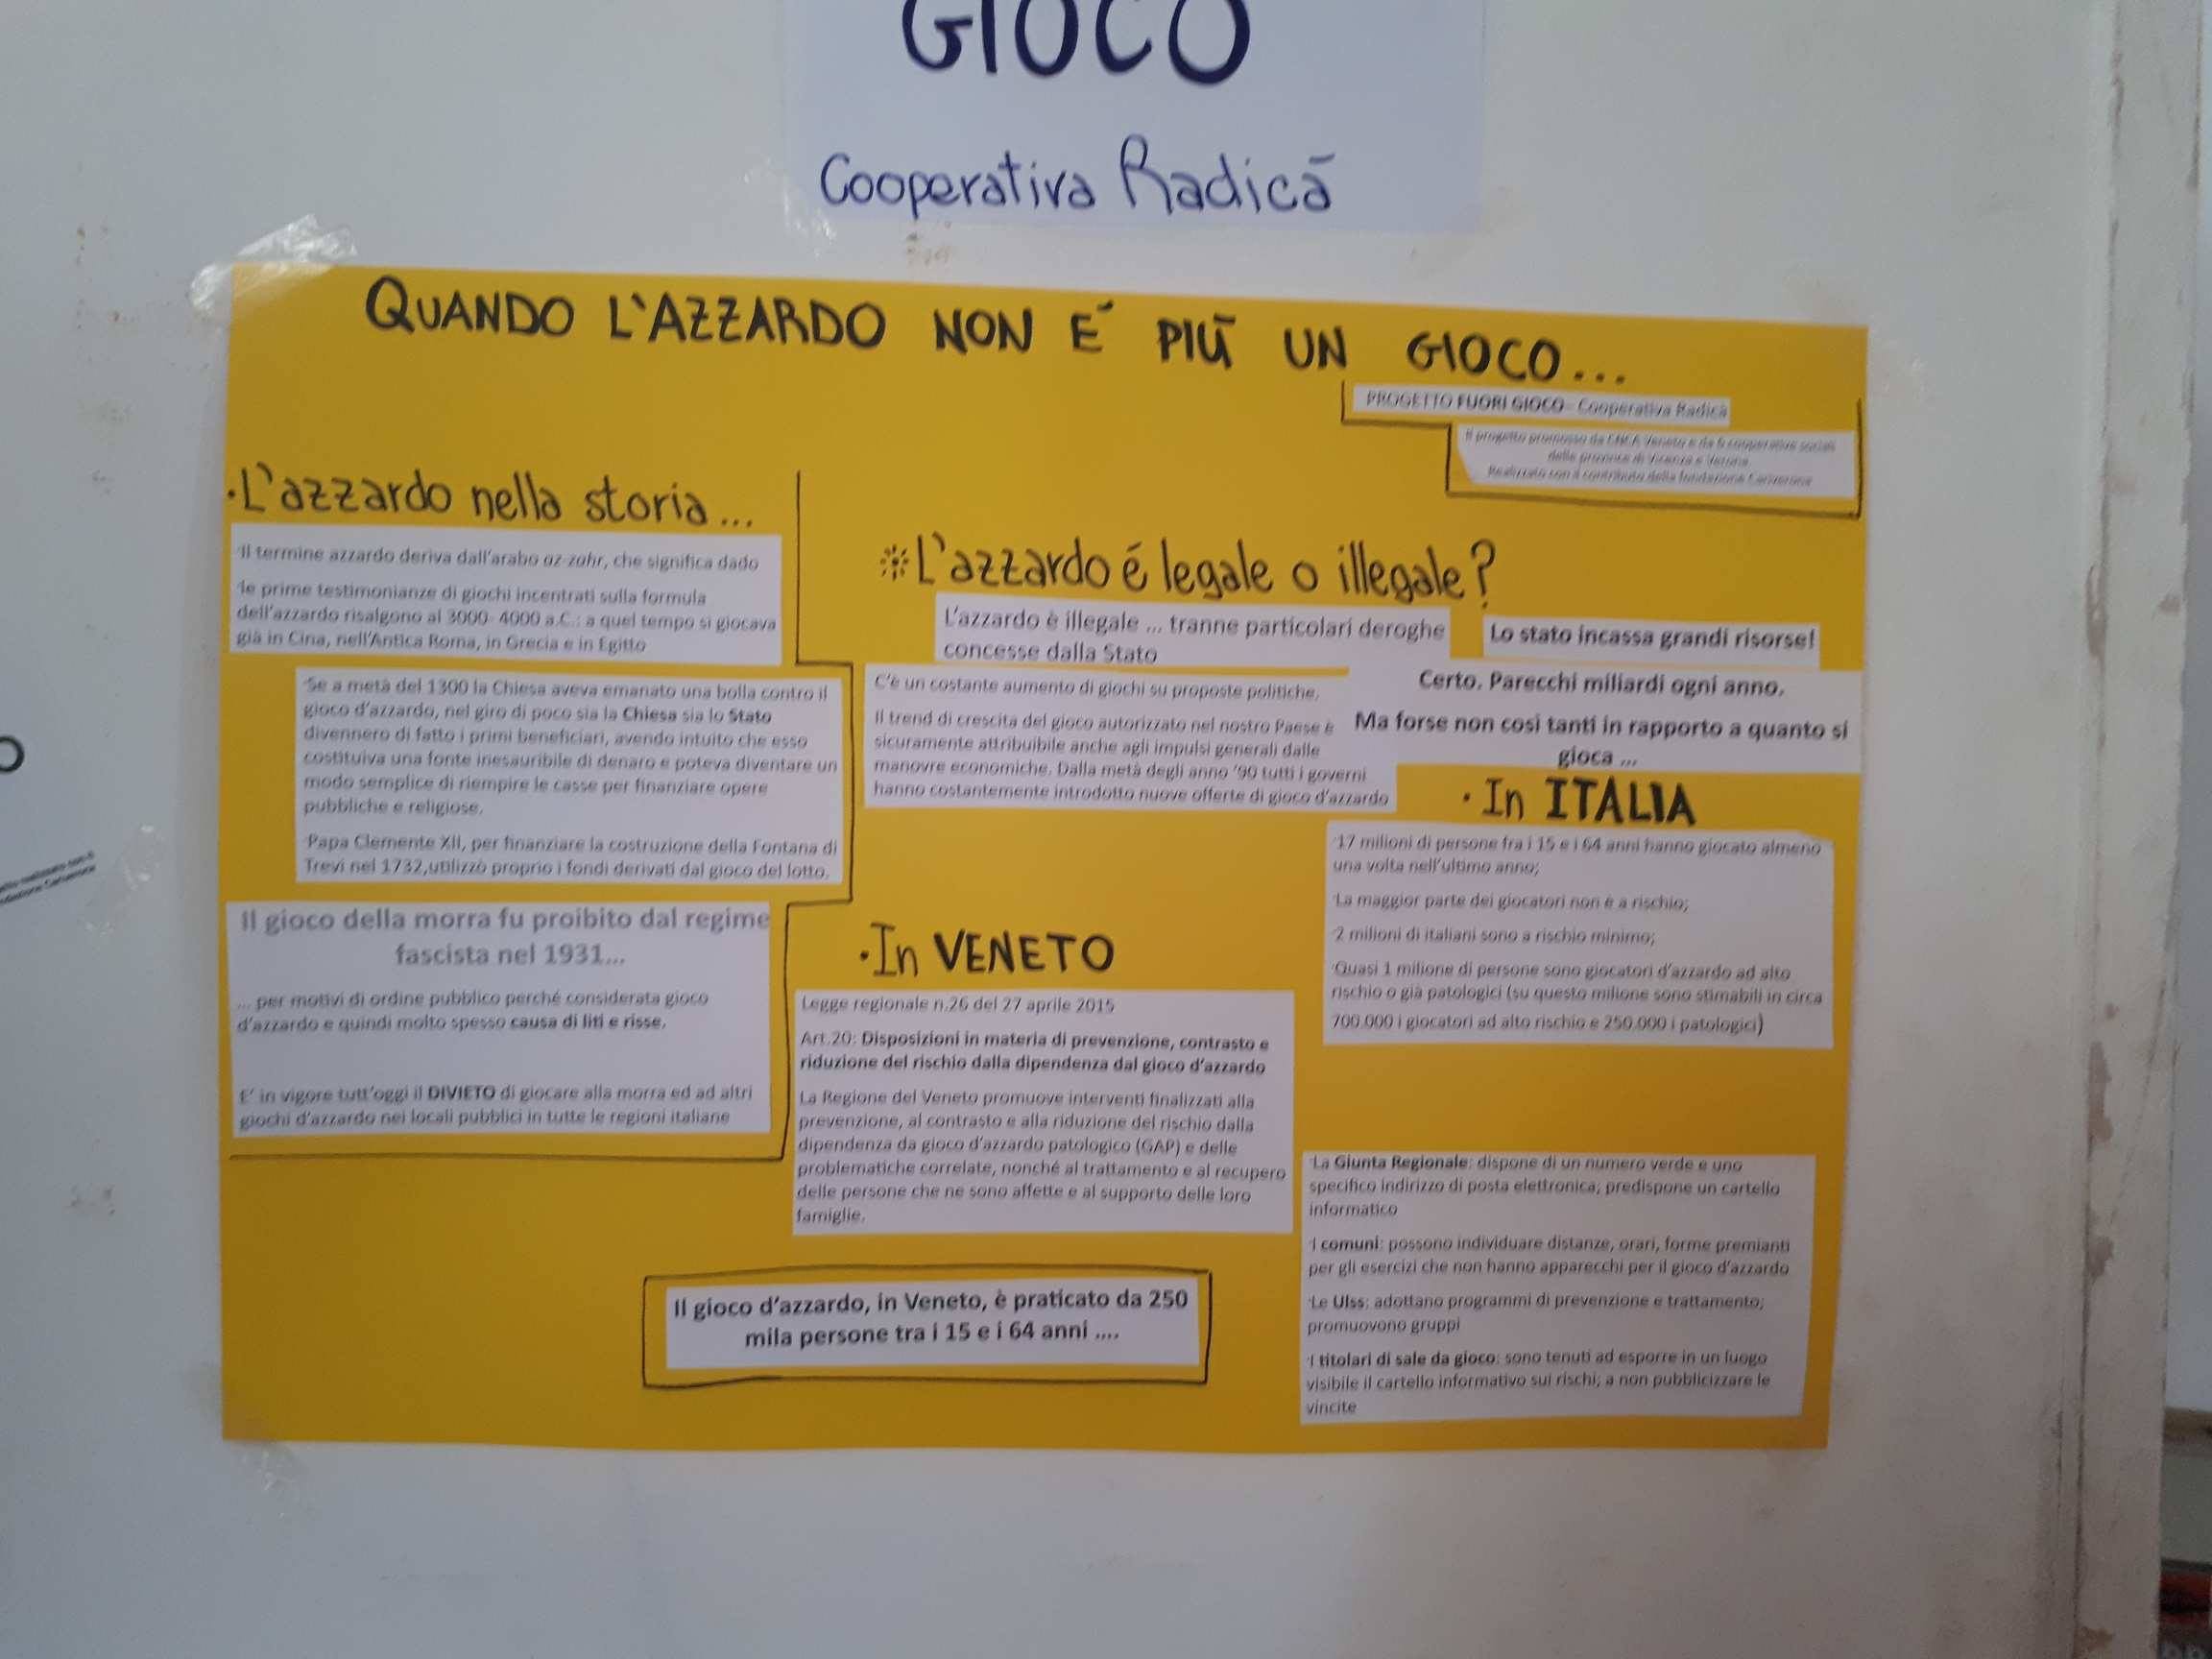 GIOCO
Cooperativa Radicā
QUANDO L'AZZARDO NON É PIŪ UN GIOCO...
PROGETTO FUORI GIOCO - Cooperativa Radicà
Il progetto promosso da CNCA Veneto e da 6 cooperative sociali
delle province di Vicenza e Verona
Realizzato con il contributo della fondazione Cariverona
·L'azzardo nella storia...
·Il termine azzardo deriva dall'arabo az-zahr, che significa dado
·le prime testimonianze di giochi incentrati sulla formula
dell'azzardo risalgono al 3000- 4000 a.C.: a quel tempo si giocava
già in Cina, nell'Antica Roma, in Grecia e in Egitto
·Se a metà del 1300 la Chiesa aveva emanato una bolla contro il
gioco d'azzardo, nel giro di poco sia la Chiesa sia lo Stato
divennero di fatto i primi beneficiari, avendo intuito che esso
costituiva una fonte inesauribile di denaro e poteva diventare un
modo semplice di riempire le casse per finanziare opere
pubbliche e religiose.
·Papa Clemente XII, per finanziare la costruzione della Fontana di
Trevi nel 1732,utilizzò proprio i fondi derivati dal gioco del lotto.
Il gioco della morra fu proibito dal regime
fascista nel 1931...
... per motivi di ordine pubblico perché considerata gioco
d'azzardo e quindi molto spesso causa di liti e risse.
E' in vigore tutt'oggi il DIVIETO di giocare alla morra ed ad altri
giochi d'azzardo nei locali pubblici in tutte le regioni italiane
L'azzardo é legale o illegale?
L'azzardo è illegale ... tranne particolari deroghe
concesse dalla Stato
Lo stato incassa grandi risorse!
Certo. Parecchi miliardi ogni anno.
Ma forse non così tanti in rapporto a quanto si
gioca ...
C'è un costante aumento di giochi su proposte politiche.
Il trend di crescita del gioco autorizzato nel nostro Paese è
sicuramente attribuibile anche agli impulsi generali dalle
manovre economiche. Dalla metà degli anno '90 tutti i governi
hanno costantemente introdotto nuove offerte di gioco d'azzardo
·In ITALIA
·17 milioni di persone fra i 15 e i 64 anni hanno giocato almeno
una volta nell'ultimo anno;
·La maggior parte dei giocatori non è a rischio;
·2 milioni di italiani sono a rischio minimo;
·Quasi 1 milione di persone sono giocatori d'azzardo ad alto
rischio o già patologici (su questo milione sono stimabili in circa
700.000 i giocatori ad alto rischio e 250.000 i patologici)
·In VENETO
Legge regionale n.26 del 27 aprile 2015
Art.20: Disposizioni in materia di prevenzione, contrasto e
riduzione del rischio dalla dipendenza dal gioco d'azzardo
La Regione del Veneto promuove interventi finalizzati alla
prevenzione, al contrasto e alla riduzione del rischio dalla
dipendenza da gioco d'azzardo patologico (GAP) e delle
problematiche correlate, nonché al trattamento e al recupero
delle persone che ne sono affette e al supporto delle loro
famiglie.
·La Giunta Regionale: dispone di un numero verde e uno
specifico indirizzo di posta elettronica; predispone un cartello
informatico
·I comuni: possono individuare distanze, orari, forme premianti
per gli esercizi che non hanno apparecchi per il gioco d'azzardo
·Le Ulss: adottano programmi di prevenzione e trattamento;
promuovono gruppi
·I titolari di sale da gioco: sono tenuti ad esporre in un luogo
visibile il cartello informativo sui rischi; a non pubblicizzare le
vincite
Il gioco d'azzardo, in Veneto, è praticato da 250
mila persone tra i 15 e i 64 anni ....